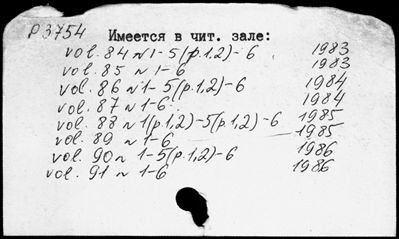 P3754
Имеется в чит. зале:
vol. 84 N 1-5(p.1,2)-6 1983
vol. 85 N 1-6 1983
vol. 86 N 1-5(p.1,2)-6 1984
vol. 87 N 1-6 1984
vol. 88 N 1(p.1,2)-5(p.1,2)-6 1985
vol. 89 N 1-6 1985
vol. 90 N 1-5(p.1,2)-6 1986
vol. 91 N 1-6 1986